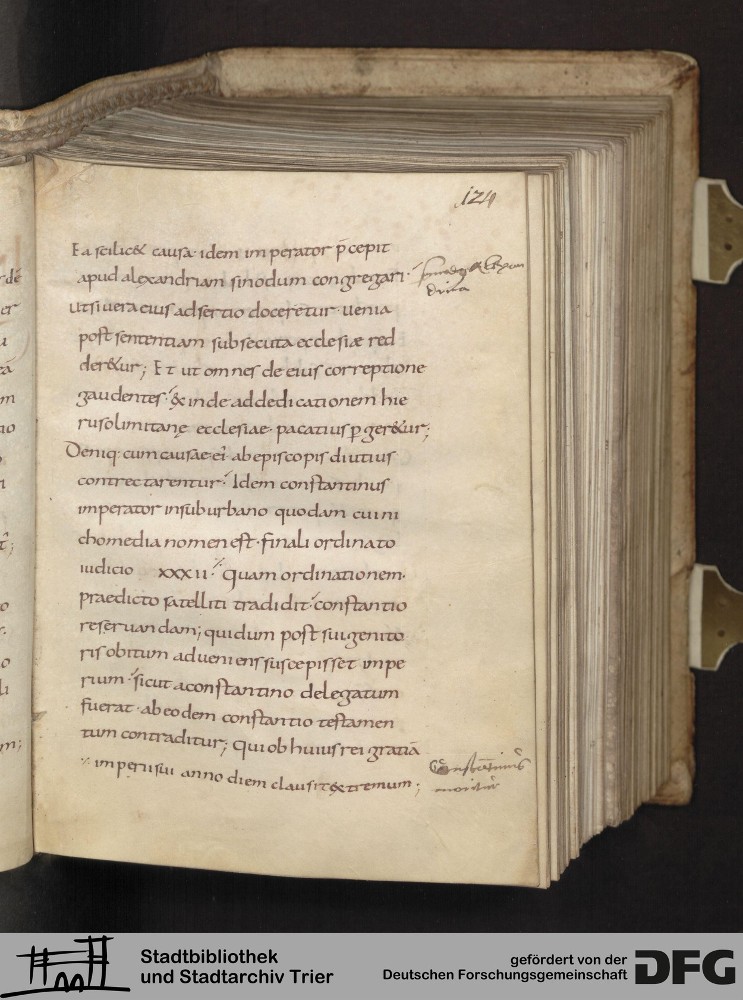 124
Ea scilic& causa· idem imperator p̄cepit
apud alexandriam sinodum congregari·
Utsi vera eius adsertio doceretur· uenia
post sententiam subsecuta ecclesiæ red
der&ur; Et ut omnes de eius correptione
gaudentes· & inde addedicationem hie
rusolimitanę ecclesiae· pacatius p̱ger&ur;
Deniq· cum causae ei᷒ abepiscopis diutius
contrectarentur· Idem constantinus
imperator insuburbano quodam cui ni
chomedia nomen est· finali ordinato
iudicio xxxii· quam ordinationem·
praedicto satelliti tradidit· constantio
reseruandam; qui dum post sui genito
ris obitum adueniens suscepisset impe
rium· sicut aconstantino delegatum
fuerat· ab eodem constantio testamen
tum contraditur; qui ob huius rei gratiā
imperii sui anno diem clausit &extremum;
Constātinus
moritur
rdē
er
eā
m
no
m;
Stadtbibliothek
und Stadtarchiv Trier
gefördert von der
Deutschen Forschungsgemeinschaft
DFG